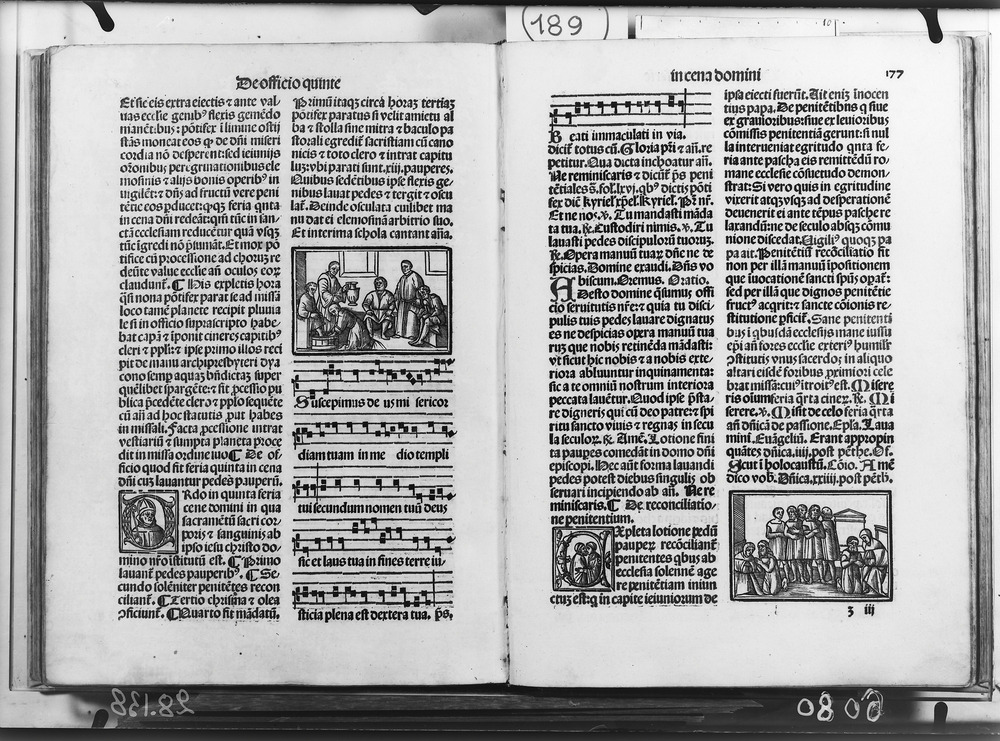 (189)
10
De officio quinte
Et sic eis extra eiectis ⁊ ante val-
uas ecclie genibꝰ flexis gemēdo
manētibus: pōtifex ī limine ostij
stās moneat eos ꝙ de dn̄i miseri
cordia nō desperent: sed ieiunijs
orōnibus peregrinationibus ele
mosinis ⁊ alijs bonis operibꝰ in
uigilēt: ⁊ dn̄s ad fructū vere peni
tētie eos ꝑducet: ꝙꝙ feria qnta
in cena dn̄i redeāt: qꝛ tūc in san-
ctā ecclesiam reducētur quā vsqꝫ
tūc īgredi nō p̄sumāt. Et mox pō
tifice cū ꝓcessione ad chorum re
deūte value ecclie an̄ oculos eoꝝ
claudunt̄. ¶ His expletis hora
qsi nona pōtifex parat se ad missā
loco tamē planete recipit pluuia
le si in officio suprascripto habe-
bat capā ⁊ īponit cineres capitibꝰ
cleri ⁊ pp̄li: ⁊ ipse primo illos reci
pit de manu archip̄sbyteri ⁊ dya
cono semp aquaꝫ bn̄dictaꝫ super
quēlibet spargēte: ⁊ fit ꝓcessio pu
blica p̄cedēte clero ⁊ pp̄lo sequēte
cū an̄ ad hoc statutis put habes
in missali. Facta ꝓcessione intrat
vestiariū ⁊ sumpta planeta proce
dit in missa ordine suo ¶ De of-
ficio quod fit feria quinta in cena
dn̄i cuꝫ lauantur pedes pauperū.
ORdo in quinta feria
cene domini in qua
sacramētū sacri cor-
poris ⁊ sanguinis ab
ipso iesu christo do-
mino nr̄o īstitutū est. ¶ Primo
lauant̄ pedes pauperibꝰ. ¶ Se-
cundo solēniter penitētes recon
ciliant̄. ¶ Tertio chrisma ⁊ olea
ꝯficiunt̄. ¶ Quarto fit mādatū.
Primū itaqꝫ circā horaꝫ tertiaꝫ
pōtifex paratus si velit amictu al
ba ⁊ stolla sine mitra ⁊ baculo pa
storali egredit̄ sacristiam cū cano
nicis ⁊ toto clero ⁊ intrat capitu
lū: vbi parati sunt .xiij. pauperes.
Quibus sedētibus ipse flexis ge-
nibus lauat pedes ⁊ tergit ⁊ oscu
lat̄. Deinde osculata cuilibet ma
nu dat ei elemosinā arbitrio suo.
Et interima schola cantant an̄a.
Suscepimus de us mi sericor
diam tuam in me dio templi
tui secundum nomen tuū deus
sic et laus tua in fines terre iu
sticia plena est dextera tua. p̄s.
in cena domini
177
Beati immaculati in via.
dicit̄ totus cū. Gloria pr̄i ⁊ an̄. re
petitur. Qua dicta inchoatur an̄.
Ne reminiscaris ⁊ dicūt̄ p̄s peni
tētiales s̄. fol. lxvj. qbꝰ dictis pōti
fex dic̄ kyriel. xp̄el. Kyriel. Pr̄ nr̄.
Et ne nos. ℣. Tu mandasti māda
ta tua. ℟. Custodiri nimis. ℣. Tu
lauasti pedes discipuloꝝ tuoruꝫ.
℟. Opera manuū tuaꝝ dn̄e ne de
spicias. Domine exaudi. Dn̄s vo
biscum. Oremus. Oratio.
ADesto domine q̄sumꝰ offi
cio seruitutis nr̄e: ⁊ quia tu disci-
pulis tuis pedes lauare dignatus
es ne despicias opera manuū tua
ruꝫ que nobis retinēda mādasti:
vt sicut hic nobis ⁊ a nobis exte-
riora abluuntur inquinamenta:
sic a te omniū nostrum interiora
peccata lauētur. Quod ipse p̄sta-
re digneris qui cū deo patre: ⁊ spi
ritu sancto viuis ⁊ regnas in secu
la seculoꝝ. ℟. Amē. Lotione fini
ta paupes comedāt in domo dn̄i
episcopi. Hec aūt forma lauandi
pedes potest diebus singulis ob
seruari incipiendo ab an̄. Ne re-
miniscaris. ¶ De reconciliatio-
ne penitentium.
EXpleta lotione pedū
paupeꝝ recōciliant̄
penitentes qbus ab
ecclesia solenne age
re penitētiam iniun
ctuꝫ est: q in capite ieiuniorum de
ipsa eiecti fuerūt. Ait enīꝫ inocen
tius papa. De penitētibꝰ q siue
ex grauioribus: siue ex leuioribus
cōmissis penitentiā gerunt: si nul
la interueniat egritudo qnta fe-
ria ante pascha eis remittēdū ro-
mane ecclesie cōsuetudo demon-
strat: Si vero quis in egritudine
vixerit atqꝫ vsqꝫ ad desperationē
deuenerit ei ante tēpus pasche re
laxandū: ne de seculo absqꝫ cōmu
nione discedat. Uigiliꝰ quoqꝫ pa
pa ait. Penitētiū recōciliatio fit
non per illā manuū īpositionem
que īuocationē sancti spūs opat̄:
sed per illā que dignos penitētie
fructꝰ acqrit: ⁊ sancte cōionis re-
stitutione ꝑficit̄. Sane penitenti
bus ī qbusdā ecclesijs mane iussu
ep̄i an̄ fores ecclie exteriꝰ humilr̄
ꝯstitutis vnus sacerdos in aliquo
altari eisdē foribus ꝓximiori cele
brat missā: cuiꝰ itroitꝰ est. Misere
ris oīum feria qrta cineꝝ. ℟. Mi
serere. ℣. Misit de celo feria qrta
an̄ dn̄icā de passione. Ep̄la. Laua
mini. Euāgeliū. Erant appropin
quātes dn̄ica. iiij. post pēthe. Of.
Sicut ī holocaustū. Cōio. Amē
dico vob. Dn̄ica. xxiij. post pēth.
z iij
28.138
08 09